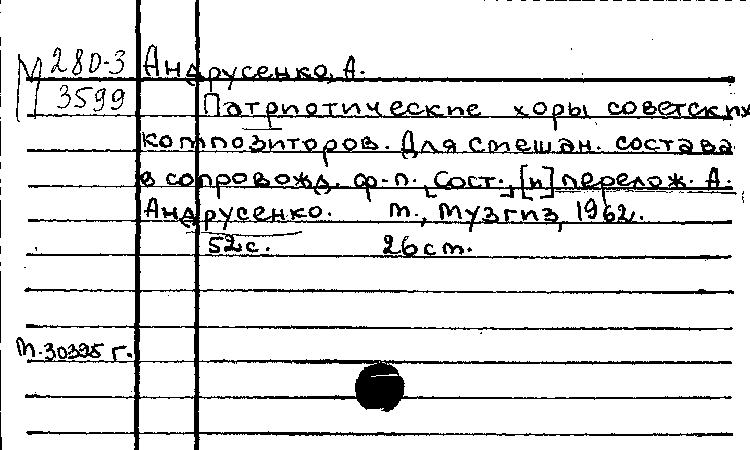 М 280-3
3599
Андрусенко, А.
Патриотические хоры советских
композиторов. Для смешан. состава
в сопровожд. ф-п. [Сост.] [и] перелож. А.
Андрусенко. М., Музгиз, 1962.
52 с. 26 см.
М.30395 г.